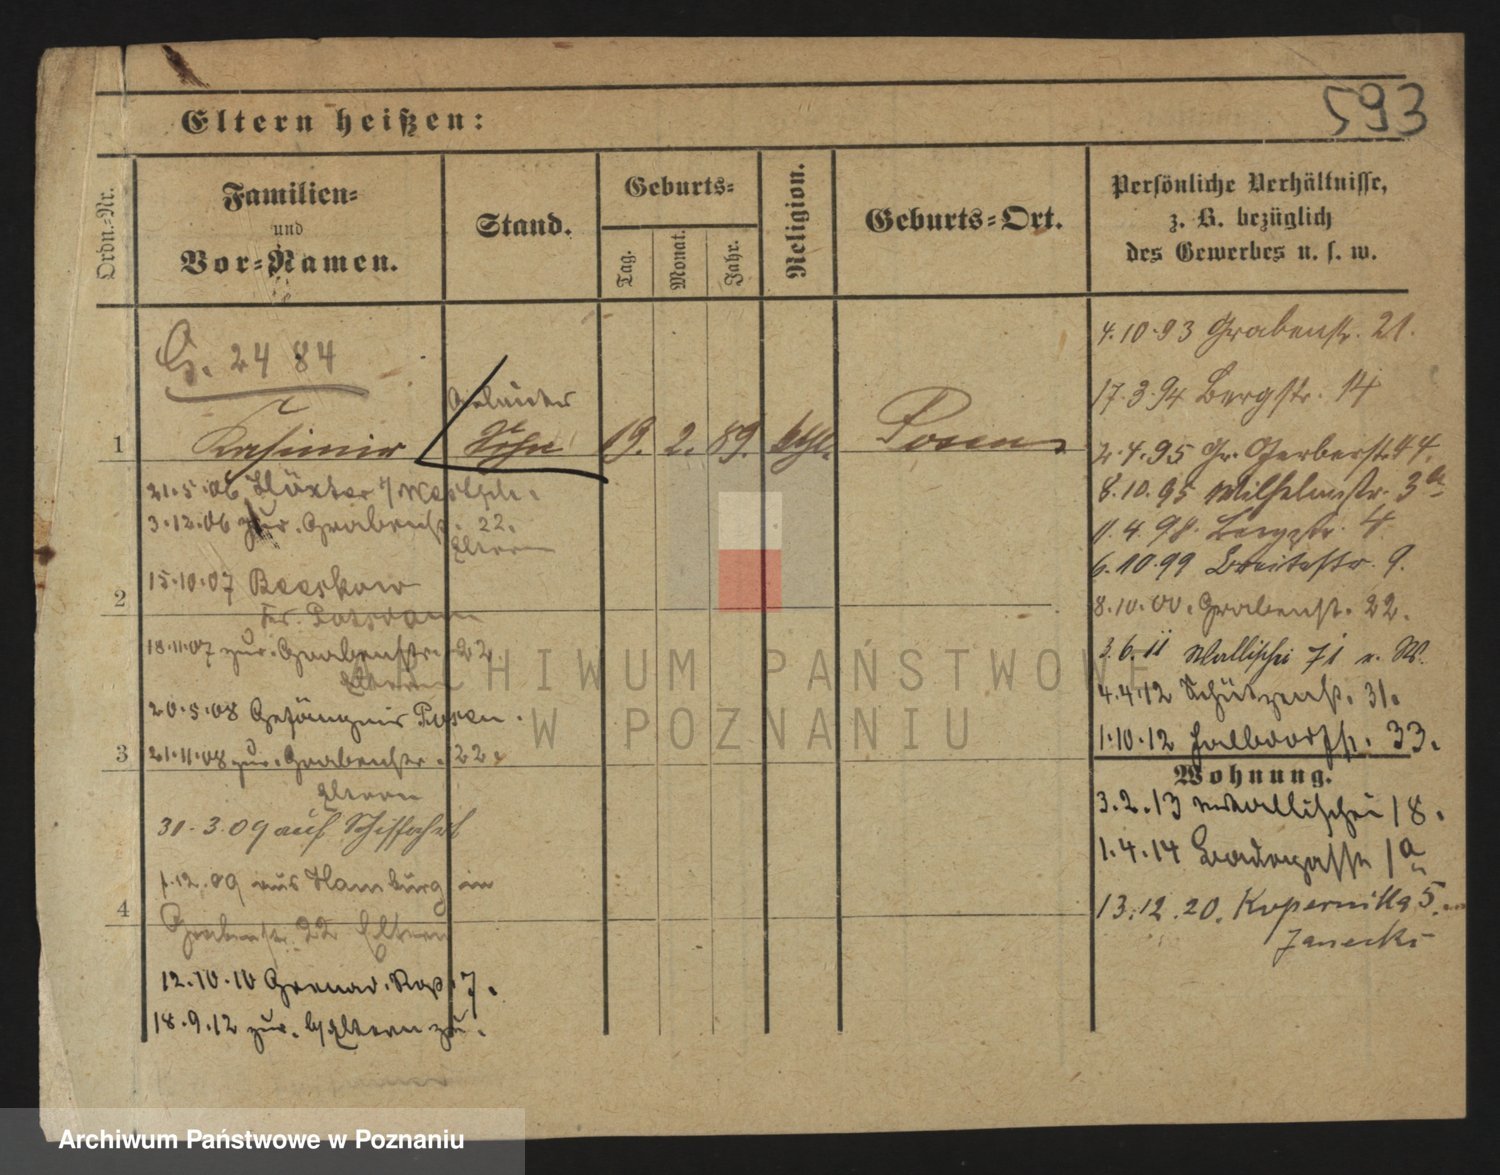 593
Eltern heißen:
Ordn.-Nr.
Familien-
und
Vor-Namen.
Stand.
Geburts-
Tag.
Monat.
Jahr.
Religion.
Geburts-Ort.
Persönliche Verhältnisse,
z. B. bezüglich
des Gewerbes u. s. w.
G. 2484
1 Kasimir Sohn 19. 2. 89. kath. Posen
21.5.06 Höxter
3.12.06 zur. Grabenstr. 22.
Eltern
2
15.10.07 Beeskow
Kr. Potsdam
18.11.07 zur. Grabenstr. 22
Eltern
20.5.08 Gefängnis Posen.
3
21.11.08 zur. Grabenstr. 22.
Eltern
31.3.09 auf Schiffahrt
1.12.09 aus Hamburg in
4
Grabenstr. 22 Eltern
12.10.10 Grenad. Rgt. 7.
18.9.12 zur. Eltern zu.
4.10.93 Grabenstr. 21.
17.3.94 Bergstr. 14
2.4.95 Gr. Gerberstr. 44.
8.10.95 Wilhelmstr. 3a
11.4.98. Bergstr. 4.
6.10.99 Breitestr. 9.
8.10.00. Grabenstr. 22.
3.6.11 Wallischei 71
4.4.12 Schützenstr. 31.
1.10.12 Halbdorfstr. 33.
Wohnung.
3.2.13 Wallischei 18.
1.4.14 Badegasse 1a
13.12.20. Kopernika 5.
Janecki
ARCHIWUM PAŃSTWOWE
W POZNANIU
Archiwum Państwowe w Poznaniu